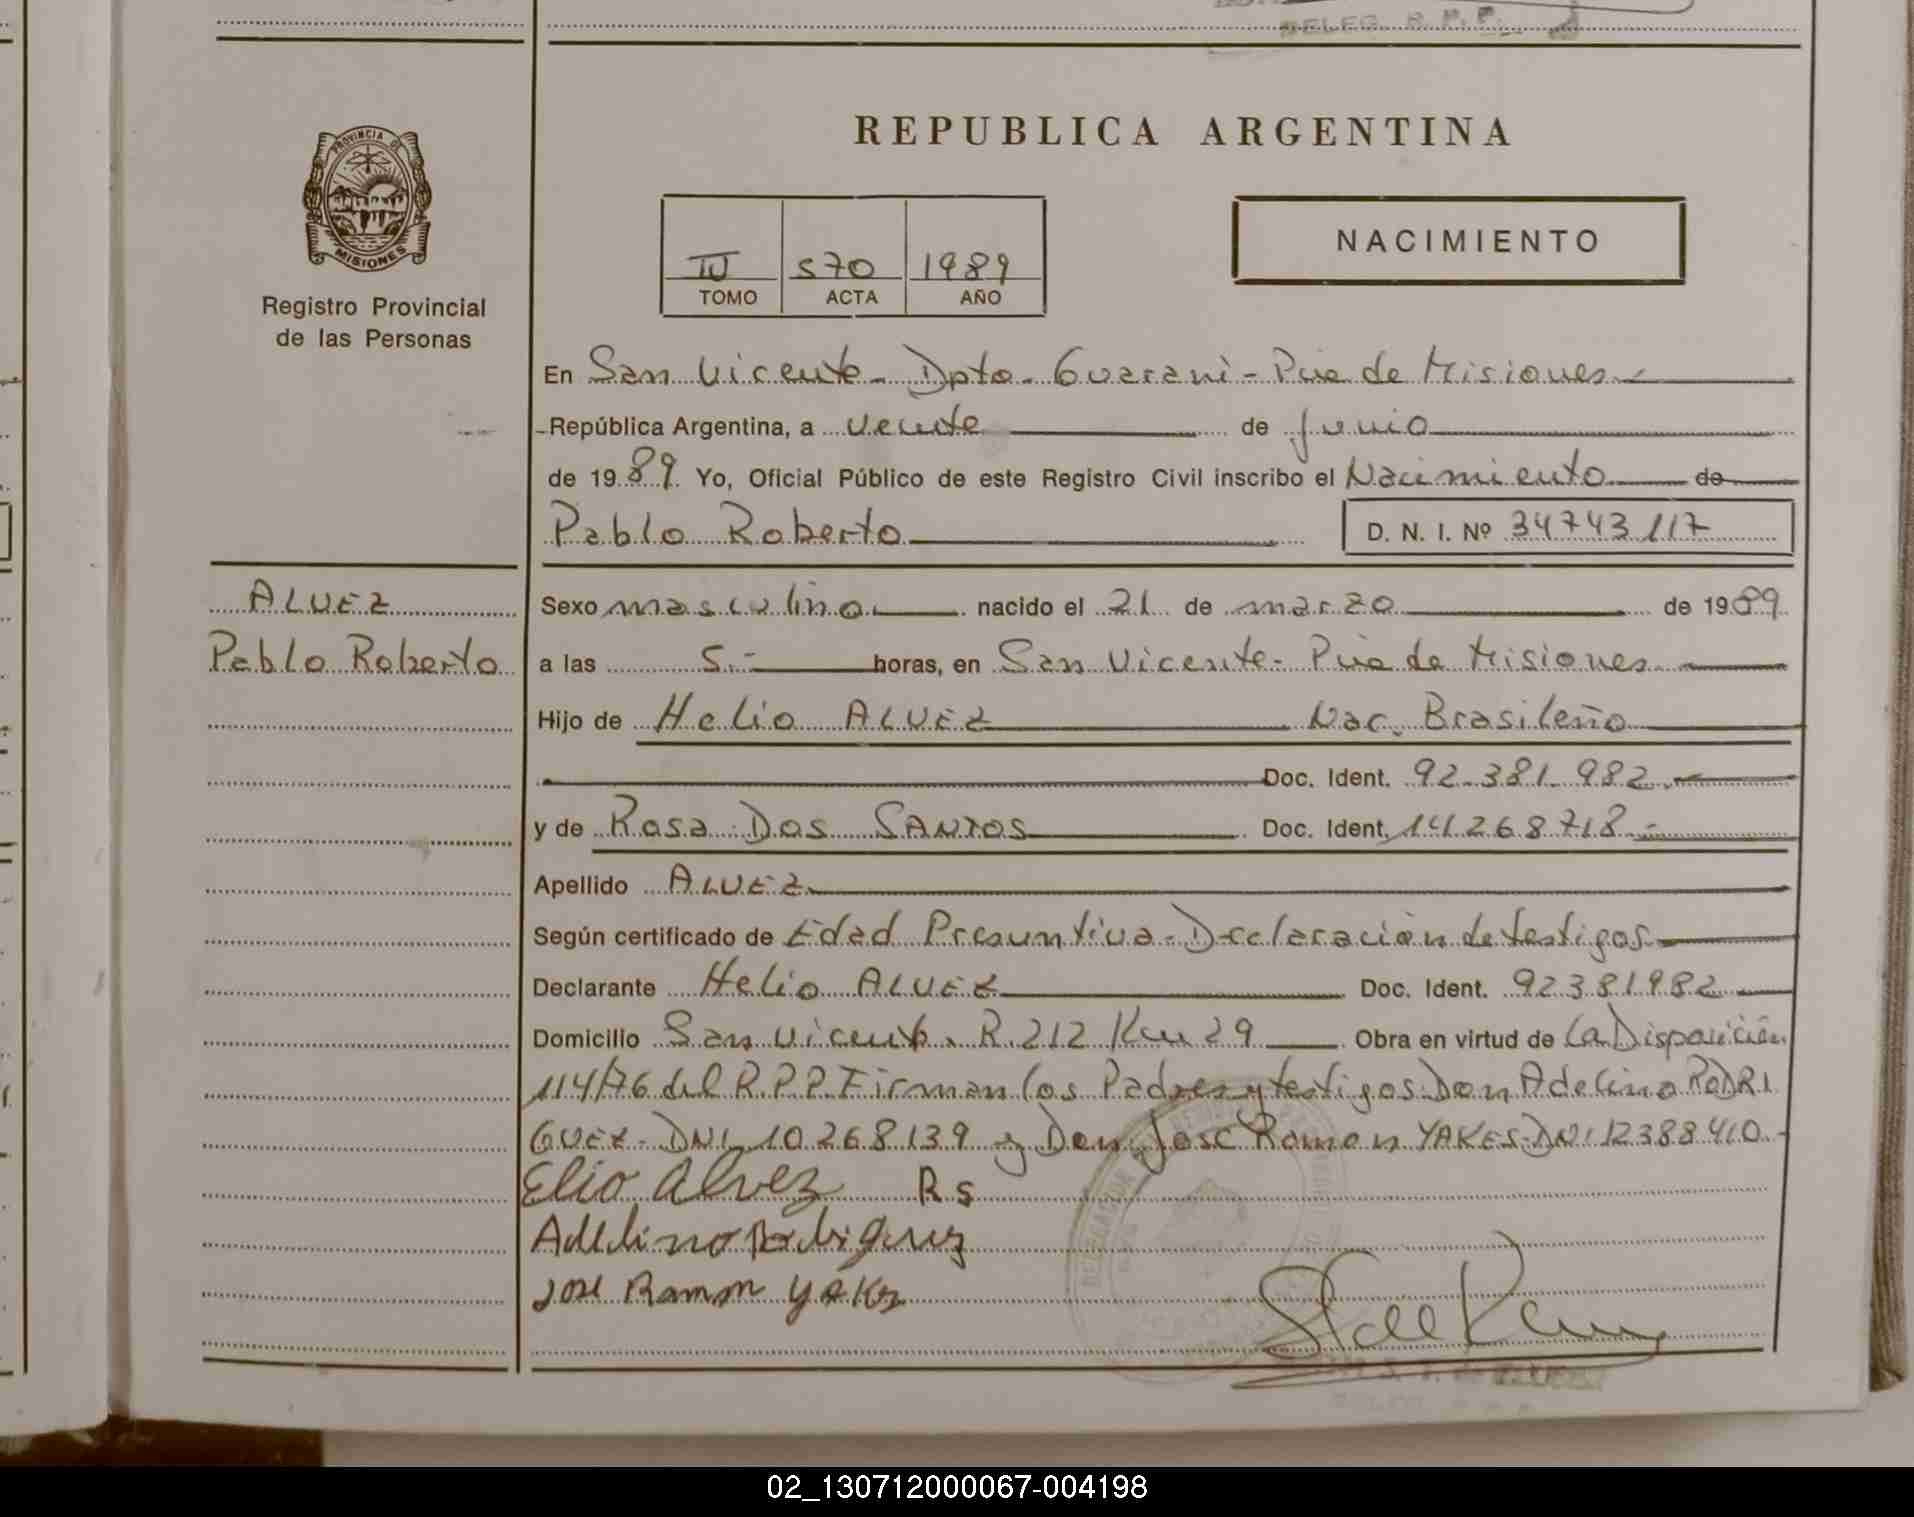 DELEG. R. P. P.
PROVINCIA DE
MISIONES
Registro Provincial
de las Personas
REPUBLICA ARGENTINA
III 570 1989
TOMO ACTA AÑO
NACIMIENTO
En San Vicente - Dpto - Guarani - Pcia de Misiones
República Argentina, a veinte de junio
de 1989 Yo, Oficial Público de este Registro Civil inscribo el Nacimiento de
Pablo Roberto D. N. I. Nº 34743117
ALVEZ
Pablo Roberto
Sexo masculino nacido el 21 de marzo de 1989
a las 5.- horas, en San Vicente - Pcia de Misiones
Hijo de Helio ALVEZ Nac. Brasileño
Doc. Ident. 92.381.982
y de Rosa Dos SANTOS Doc. Ident. 14.268.718.-
Apellido ALVEZ
Según certificado de Edad Presuntiva - Declaración de testigos
Declarante Helio ALVEZ Doc. Ident. 92381982
Domicilio San Vicente. R. 212 Km 29 Obra en virtud de La Disposición
114/76 del R.P.P. Firman los Padres y testigos Don Adelino RODRI
GUEZ - DNI 10.268.139 y Don Jose Ramon YAKES - DNI 12388410 -
Elio Alvez R S
Adelino Rodriguez
Jose Ramon YAKes
02_130712000067-004198